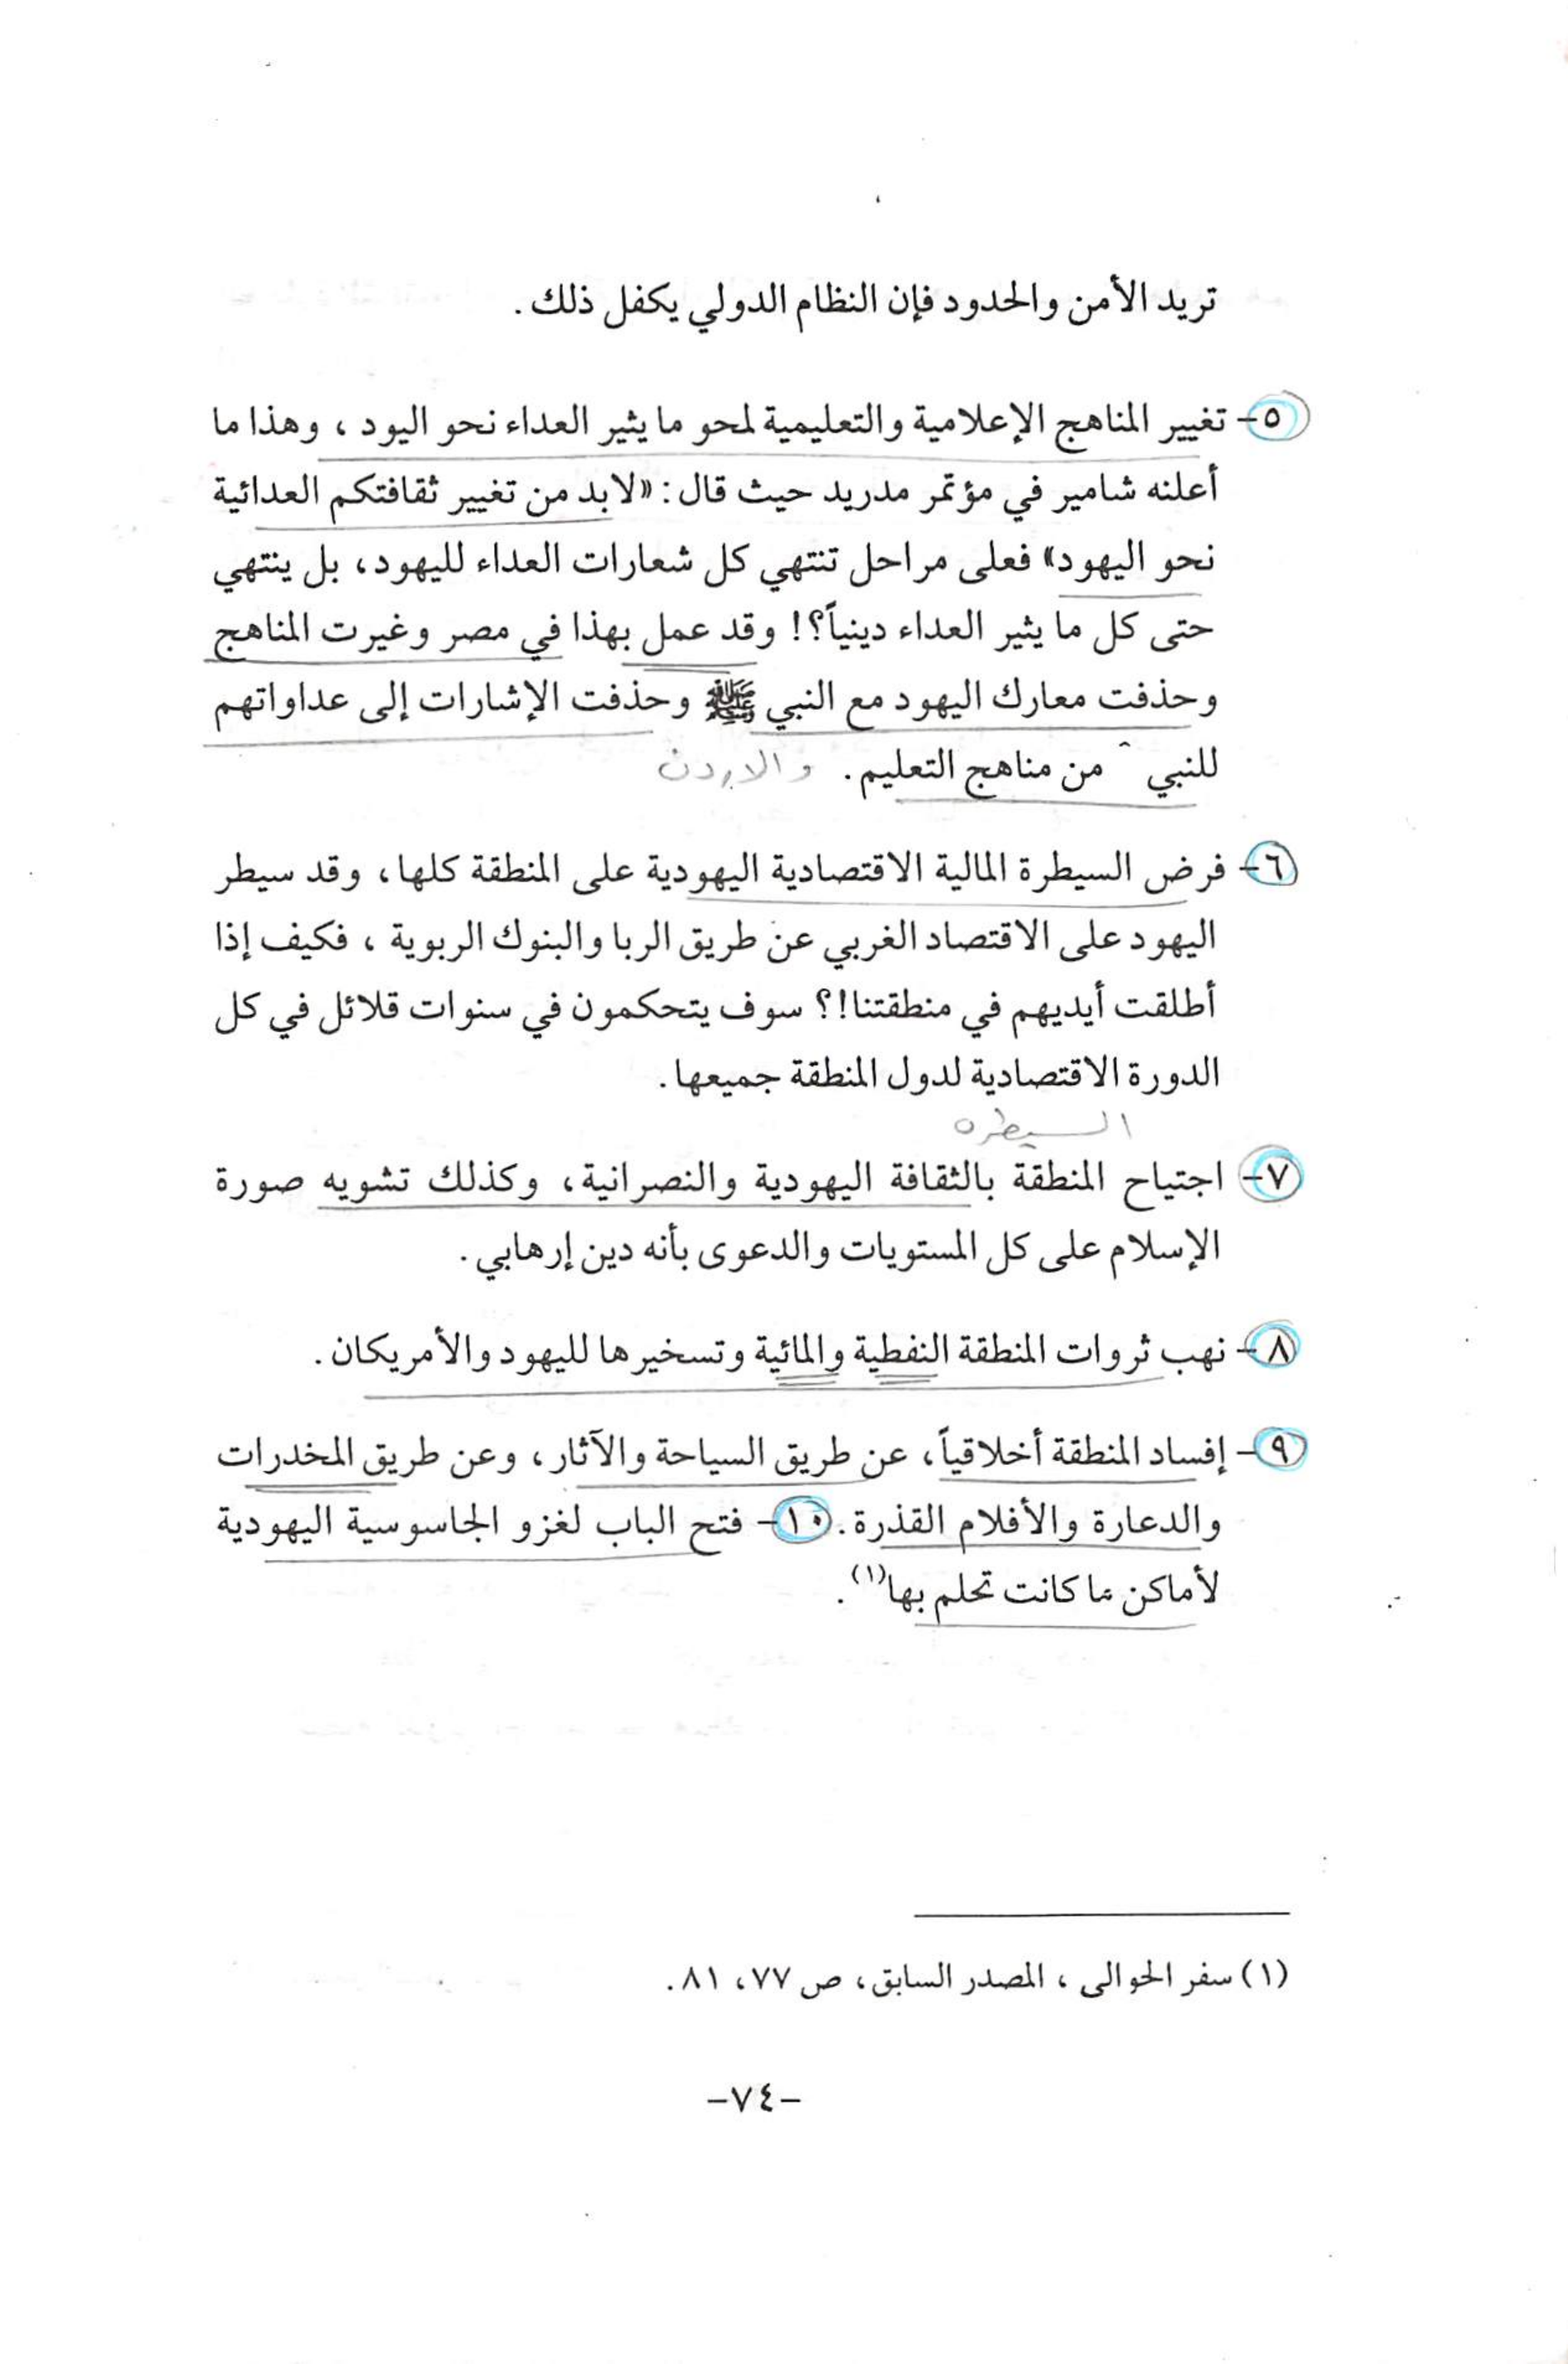 تريد الأمن والحدود فإن النظام الدولي يكفل ذلك .
٥- تغيير المناهج الإعلامية والتعليمية لمحو ما يثير العداء نحو اليود ، وهذا ما
أعلنه شامير في مؤتمر مدريد حيث قال : «لابد من تغيير ثقافتكم العدائية
نحو اليهود» فعلى مراحل تنتهي كل شعارات العداء لليهود، بل ينتهي
حتى كل ما يثير العداء دينياً؟! وقد عمل بهذا في مصر وغيرت المناهج
وحذفت معارك اليهود مع النبي ﷺ وحذفت الإشارات إلى عداواتهم
للنبي ˆ من مناهج التعليم . والاردن
٦- فرض السيطرة المالية الاقتصادية اليهودية على المنطقة كلها، وقد سيطر
اليهود على الاقتصاد الغربي عن طريق الربا والبنوك الربوية ، فكيف إذا
أطلقت أيديهم في منطقتنا!؟ سوف يتحكمون في سنوات قلائل في كل
الدورة الاقتصادية لدول المنطقة جميعها.
السيطره
٧- اجتياح المنطقة بالثقافة اليهودية والنصرانية، وكذلك تشويه صورة
الإسلام على كل المستويات والدعوى بأنه دين إرهابي .
٨- نهب ثروات المنطقة النفطية والمائية وتسخيرها لليهود والأمريكان .
٩- إفساد المنطقة أخلاقياً، عن طريق السياحة والآثار، وعن طريق المخدرات
والدعارة والأفلام القذرة . ١٠- فتح الباب لغزو الجاسوسية اليهودية
لأماكن ما كانت تحلم بها(١) .
(١) سفر الحوالى ، المصدر السابق، ص ٧٧، ٨١ .
-٧٤-